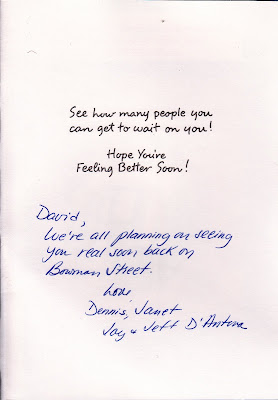 See how many people you
can get to wait on you!
Hope You're
Feeling Better Soon!
David,
We're all planning on seeing
you real soon back on
Bowman Street.
Love
Dennis, Janet
Jay & Jeff D'Antona